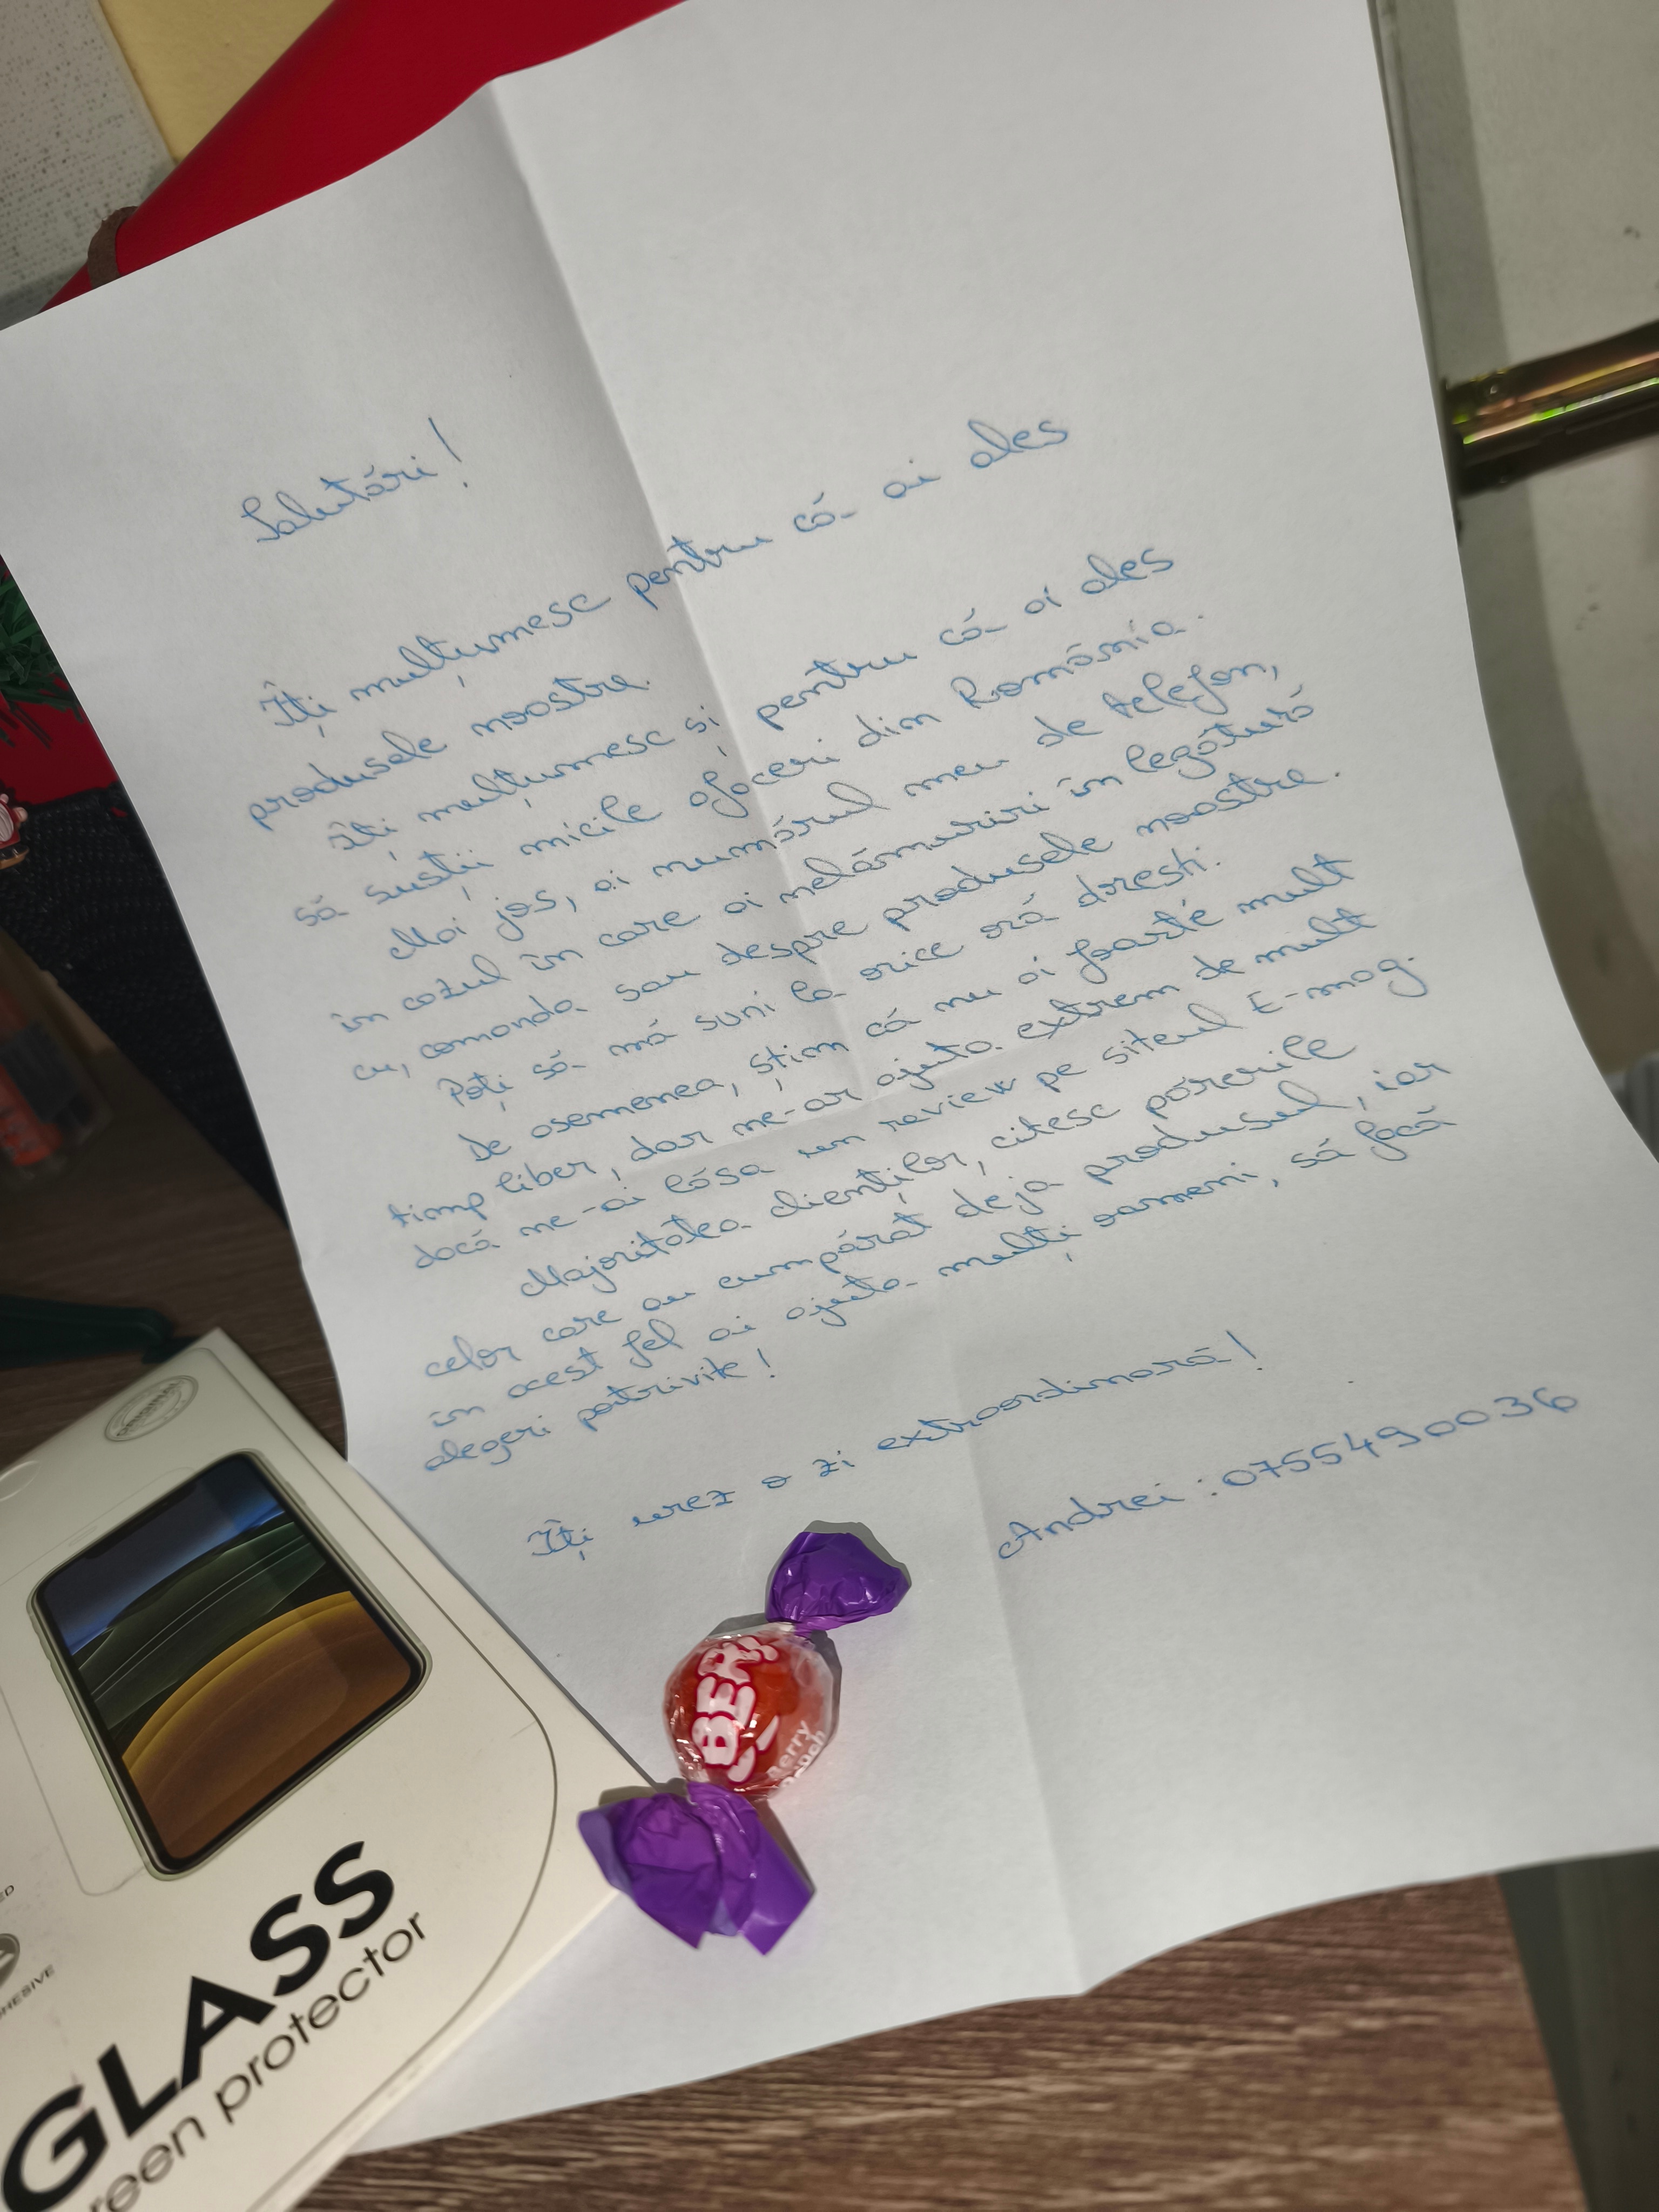 Salutări!
Îți mulțumesc pentru că ai ales
produsele noastre.
Îți mulțumesc și pentru că ai ales
să susții micile afaceri din România.
Mai jos, ai numărul meu de telefon,
în cazul în care ai nelămuriri în legătură
cu, comanda sau despre produsele noastre.
Poți să mă suni la orice oră dresti.
De asemenea, știm că nu ai foarte mult
timp liber, dar ne-ar ajuta extrem de mult
dacă ne-ai lăsa un review pe siteul E-mag.
Majoritatea clienților, citesc părerile
celor care au cumpărat deja produsul, iar
în acest fel ai ajuta mulți oameni, să facă
alegeri potrivite!
Îți urez o zi extraordinară!
Andrei: 0755490036
BER
Berry
GLASS
reen protector
HESIVE
ED